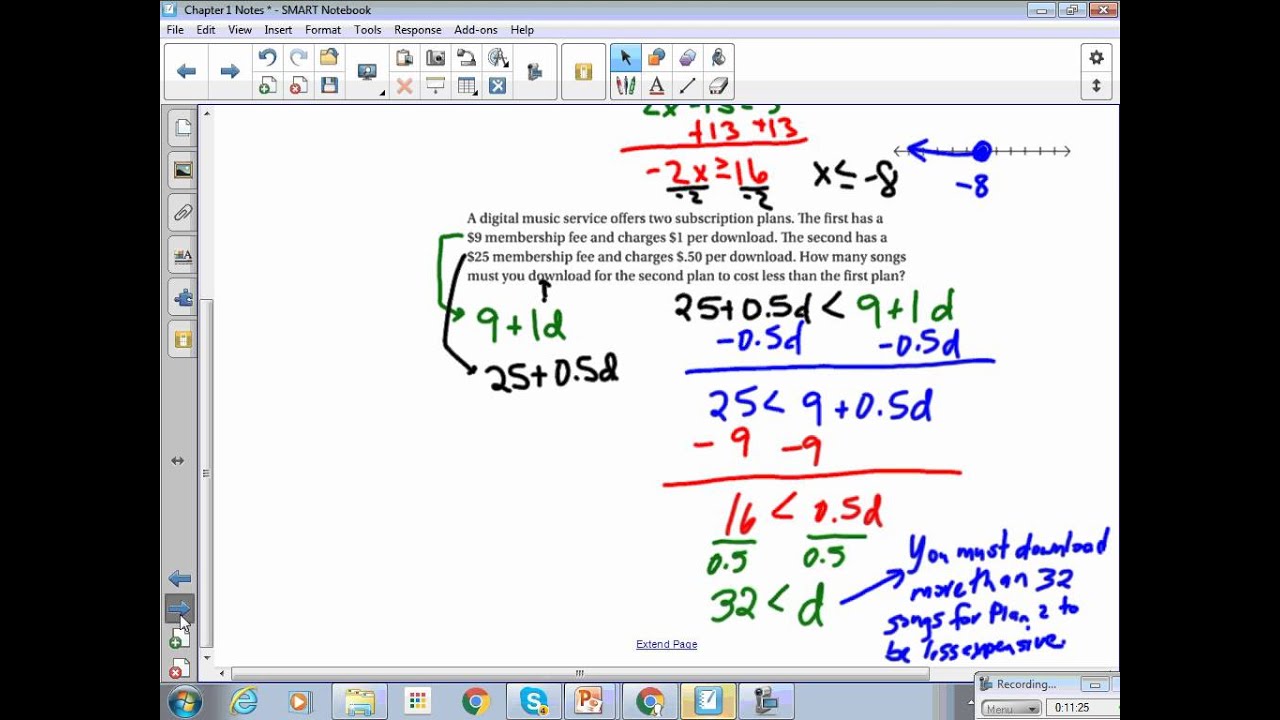 Chapter 1 Notes * - SMART Notebook
File Edit View Insert Format Tools Response Add-ons Help
+13 +13
-2x ≥ 16 x ≤ -8
-2 -2
-8
A digital music service offers two subscription plans. The first has a
$9 membership fee and charges $1 per download. The second has a
$25 membership fee and charges $.50 per download. How many songs
must you download for the second plan to cost less than the first plan?
9+1d
25+0.5d
25+0.5d < 9+1d
-0.5d -0.5d
25 < 9+0.5d
-9 -9
16 < 0.5d
0.5 0.5
32 < d
You must download
more than 32
songs for Plan 2 to
be less expensive.
Extend Page
Recording...
Menu 0:11:25